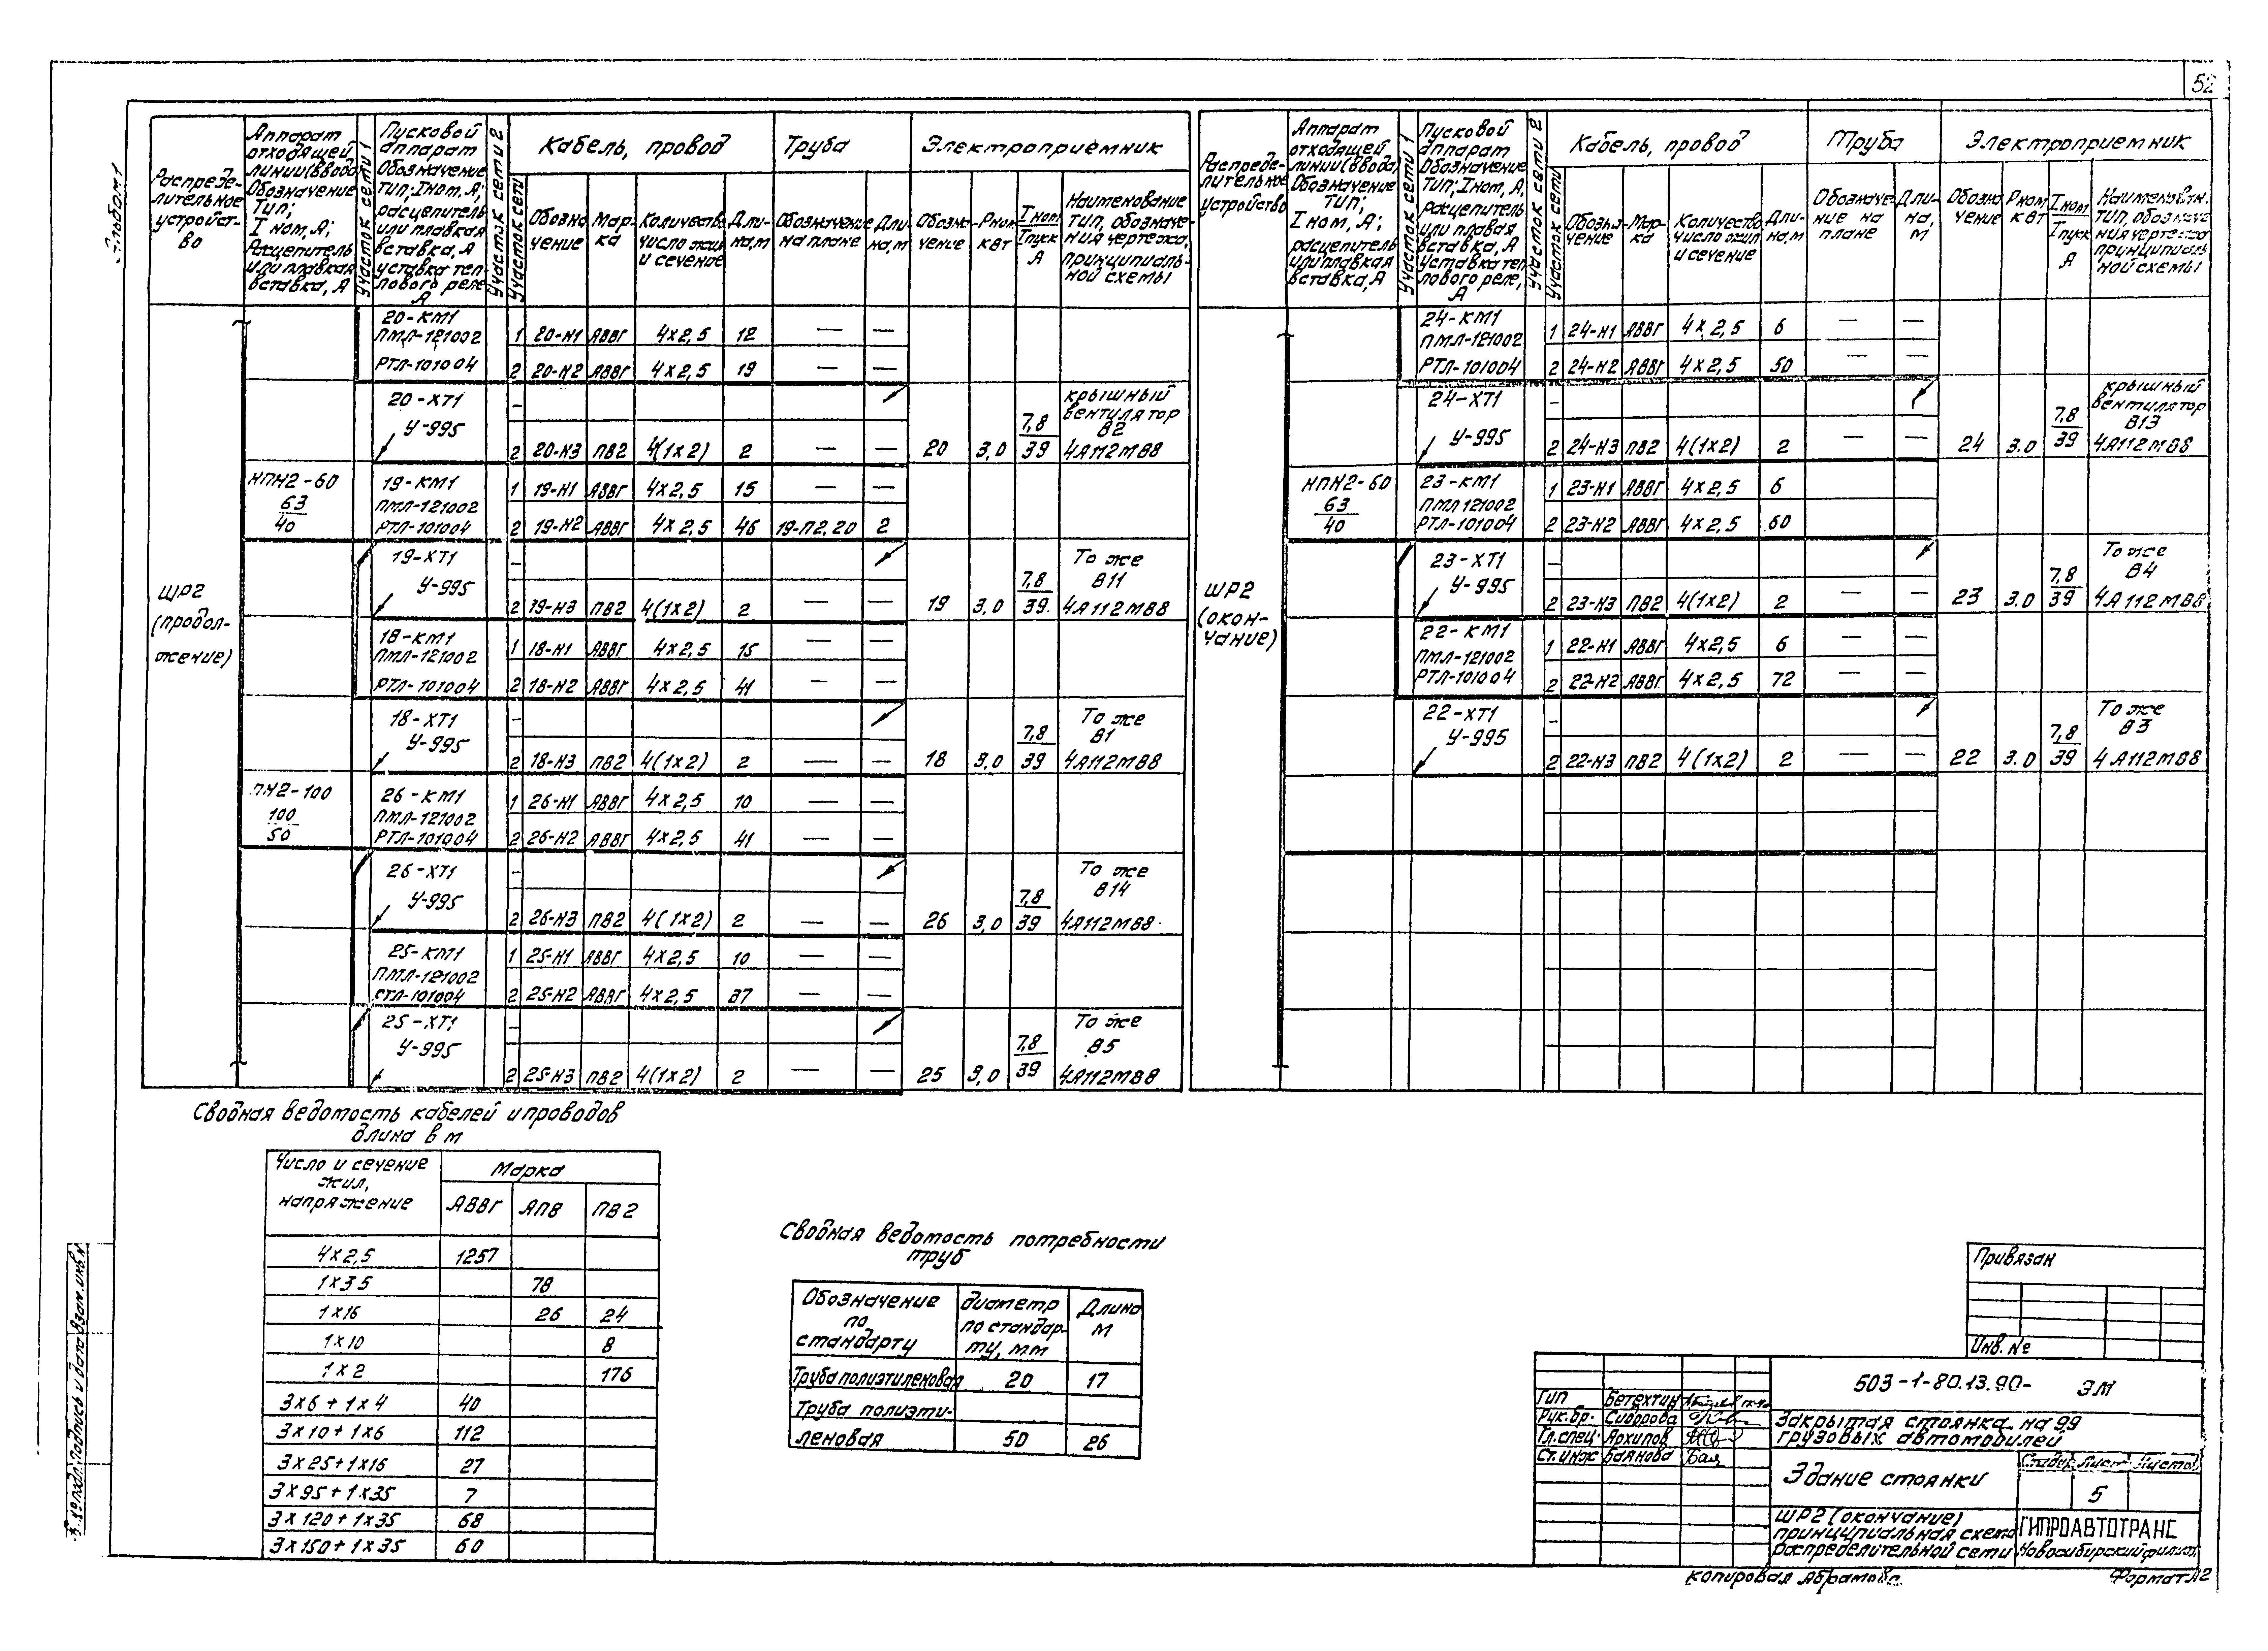 52
Альбом 1
Распреде-
лительное
устройст-
во
Аппарат
отходящей
линии (ввода)
Обозначение
Тип;
I ном, А;
Расцепитель
или плавкая
вставка, А
Участок сети 1
Пусковой
аппарат
Обозначение
тип; Iном. А;
расцепитель
или плавкая
вставка, А
уставка теп-
лового реле
А
Участок сети 2
Участок сети
Кабель, провод
Обозна
чение
Мар-
ка
Количество
число жил
и сечение
Дли-
на, м
Труба
Обозначение
на плане
Дли-
на, м
Электроприёмник
Обозна-
чение
Рном.
кВт
I ном
I пуск
А
Наименование
тип, обозначе-
ния чертежа,
принципиаль-
ной схемы
ШР2
(продол-
жение)
20-КМ1
ПМЛ-121002
РТЛ-101004
1 20-Н1 АВВГ 4х2,5 12 — —
2 20-Н2 АВВГ 4х2,5 19 — —
20-ХТ1
У-995
-
2 20-Н3 ПВ2 4(1х2) 2 — — 20 3,0 7,8/39
крышный
вентилятор
В2
4А112МВ8
НПН2-60
63
40
19-КМ1
ПМЛ-121002
РТЛ-101004
1 19-Н1 АВВГ 4х2,5 15
2 19-Н2 АВВГ 4х2,5 46 19-П2.20 2
19-ХТ1
У-995
-
2 19-Н3 ПВ2 4(1х2) 2 — — 19 3,0 7,8/39
То же
В11
4А112МВ8
18-КМ1
ПМЛ-121002
РТЛ-101004
1 18-Н1 АВВГ 4х2,5 15 — —
2 18-Н2 АВВГ 4х2,5 41 — —
18-ХТ1
У-995
-
2 18-Н3 ПВ2 4(1х2) 2 — — 18 3,0 7,8/39
То же
В1
4А112МВ8
ПН2-100
100
50
26-КМ1
ПМЛ-121002
РТЛ-101004
1 26-Н1 АВВГ 4х2,5 10 — —
2 26-Н2 АВВГ 4х2,5 41 — —
26-ХТ1
У-995
-
2 26-Н3 ПВ2 4(1х2) 2 — — 26 3,0 7,8/39
То же
В14
4А112МВ8
25-КМ1
ПМЛ-121002
СТЛ-101004
1 25-Н1 АВВГ 4х2,5 10 — —
2 25-Н2 АВВГ 4х2,5 37 — —
25-ХТ1
У-995
-
2 25-Н3 ПВ2 4(1х2) 2 — — 25 3,0 7,8/39
То же
В5
4А112МВ8
Распреде-
лительное
устройство
Аппарат
отходящей
линии (ввода)
Обозначение
тип;
I ном, А;
расцепитель
или плавкая
вставка, А
Участок сети 1
Пусковой
аппарат
Обозначение
Тип; I ном, А,
расцепитель
или плавая
вставка, А
Уставка теп
лового реле,
А
Участок сети 2
Участок сети
Кабель, провод
Обозна
чение
Мар-
ка
Количество
число жил
и сечение
Дли-
на, м
Труба
Обозначе
ние на
плане
Дли-
на,
м
Электроприемник
Обозна
чение
Рном
кВт
I ном
I пуск
А
Наименован.
тип, обозначе
ния чертежа
принципиаль
ной схемы
ШР2
(окон-
чание)
24-КМ1
ПМЛ-121002
РТЛ-101004
1 24-Н1 АВВГ 4х2,5 6 — —
2 24-Н2 АВВГ 4х2,5 50 — —
24-ХТ1
У-995
-
2 24-Н3 ПВ2 4(1х2) 2 — — 24 3.0 7,8/39
крышный
вентилятор
В13
4А112МВ8
НПН2-60
63
40
23-КМ1
ПМЛ 121002
РТЛ-101004
1 23-Н1 АВВГ 4х2,5 6
2 23-Н2 АВВГ 4х2,5 60
23-ХТ1
У-995
-
2 23-Н3 ПВ2 4(1х2) 2 — — 23 3.0 7,8/39
То же
В4
4А112МВ8
22-КМ1
ПМЛ-121002
РТЛ-101004
1 22-Н1 АВВГ 4х2,5 6 — —
2 22-Н2 АВВГ 4х2,5 72 — —
22-ХТ1
У-995
-
2 22-Н3 ПВ2 4(1х2) 2 — — 22 3.0 7,8/39
То же
В3
4А112МВ8
Сводная ведомость кабелей и проводов
длина в м
Число и сечение
жил,
напряжение
Марка
АВВГ АПВ ПВ2
4х2,5 1257
1х35 78
1х16 26 24
1х10 8
1х2 176
3х6+1х4 40
3х10+1х6 112
3х25+1х16 27
3х95+1х35 7
3х120+1х35 68
3х150+1х35 60
Сводная ведомость потребности
труб
Обозначение
по
стандарту
диаметр
по стандар-
ту, мм
Длина
м
Труба полиэтиленовая 20 17
Труба полиэти-
леновая 50 26
Привязан
Инв. №
503-1-80.13.90- ЭМ
Гип Бетехтин
Рук.бр. Сидорова
Гл.спец. Архипов
Ст.инж Баянова
Закрытая стоянка на 99
грузовых автомобилей
Здание стоянки
Стадия Лист Листов
5
ШР2 (окончание)
принципиальная схема
распределительной сети
ГИПРОАВТОТРАНС
Новосибирский филиал
Копировал Абрамова
Формат А2
№ подл. Подпись и дата Взам. инв. №